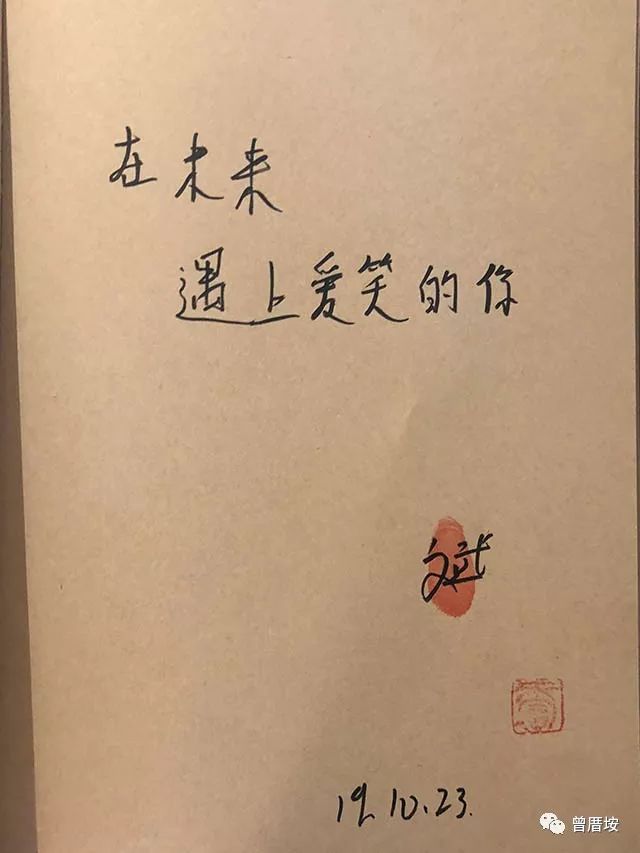 在未来
遇上爱笑的你
斌
19.10.23.
曾厝垵